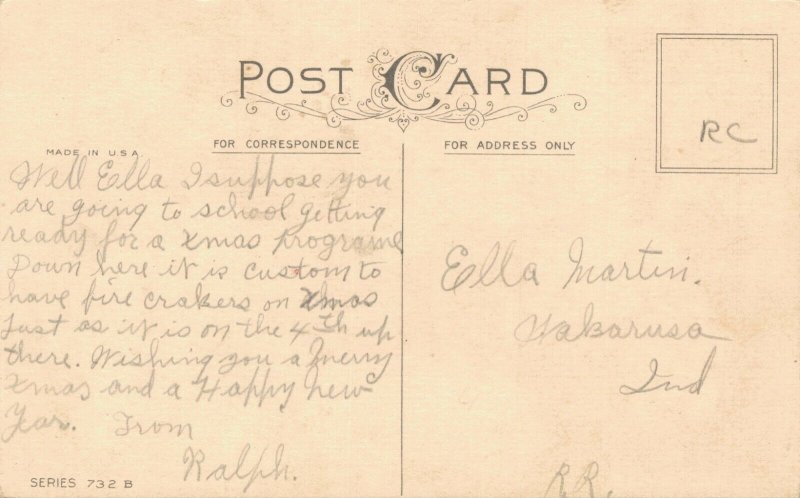 POST CARD
MADE IN U.S.A.
FOR CORRESPONDENCE
FOR ADDRESS ONLY
RC
Well Ella I suppose you
are going to school getting
ready for a Xmas programe
Down here it is custom to
have fire crakers on Xmas
Just as it is on the 4th up
there. Wishing you a Merry
Xmas and a Happy New
Year. From
Ralph.
Ella Martin.
Wakarusa
Ind
R.R.
SERIES 732 B